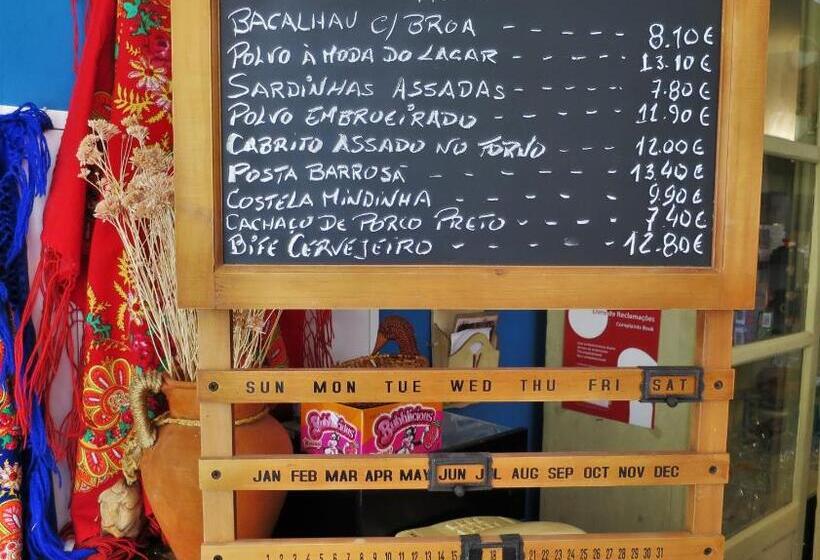 BACALHAU C/ BROA - - - - - 8.10€
POLVO À MODA DO LAGAR - - - - - 13.10€
SARDINHAS ASSADAS - - - - - 7.80€
POLVO EMBRUEIRADO - - - - - 11.90€
CABRITO ASSADO NO FORNO - - - 12.00€
POSTA BARROSÃ - - - - - - - 13.40€
COSTELA MINDINHA - - - - - - 9.90€
CACHAÇO DE PORCO PRETO - - - - 7.40€
BIFE CERVEJEIRO - - - - - - 12.80€
Livro de Reclamações
Complaints Book
SUN MON TUE WED THU FRI SAT
Bubblicious
JAN FEB MAR APR MAY JUN JUL AUG SEP OCT NOV DEC
1 2 3 4 5 6 7 8 9 10 11 12 13 14 15 18 21 22 23 24 25 26 27 28 29 30 31